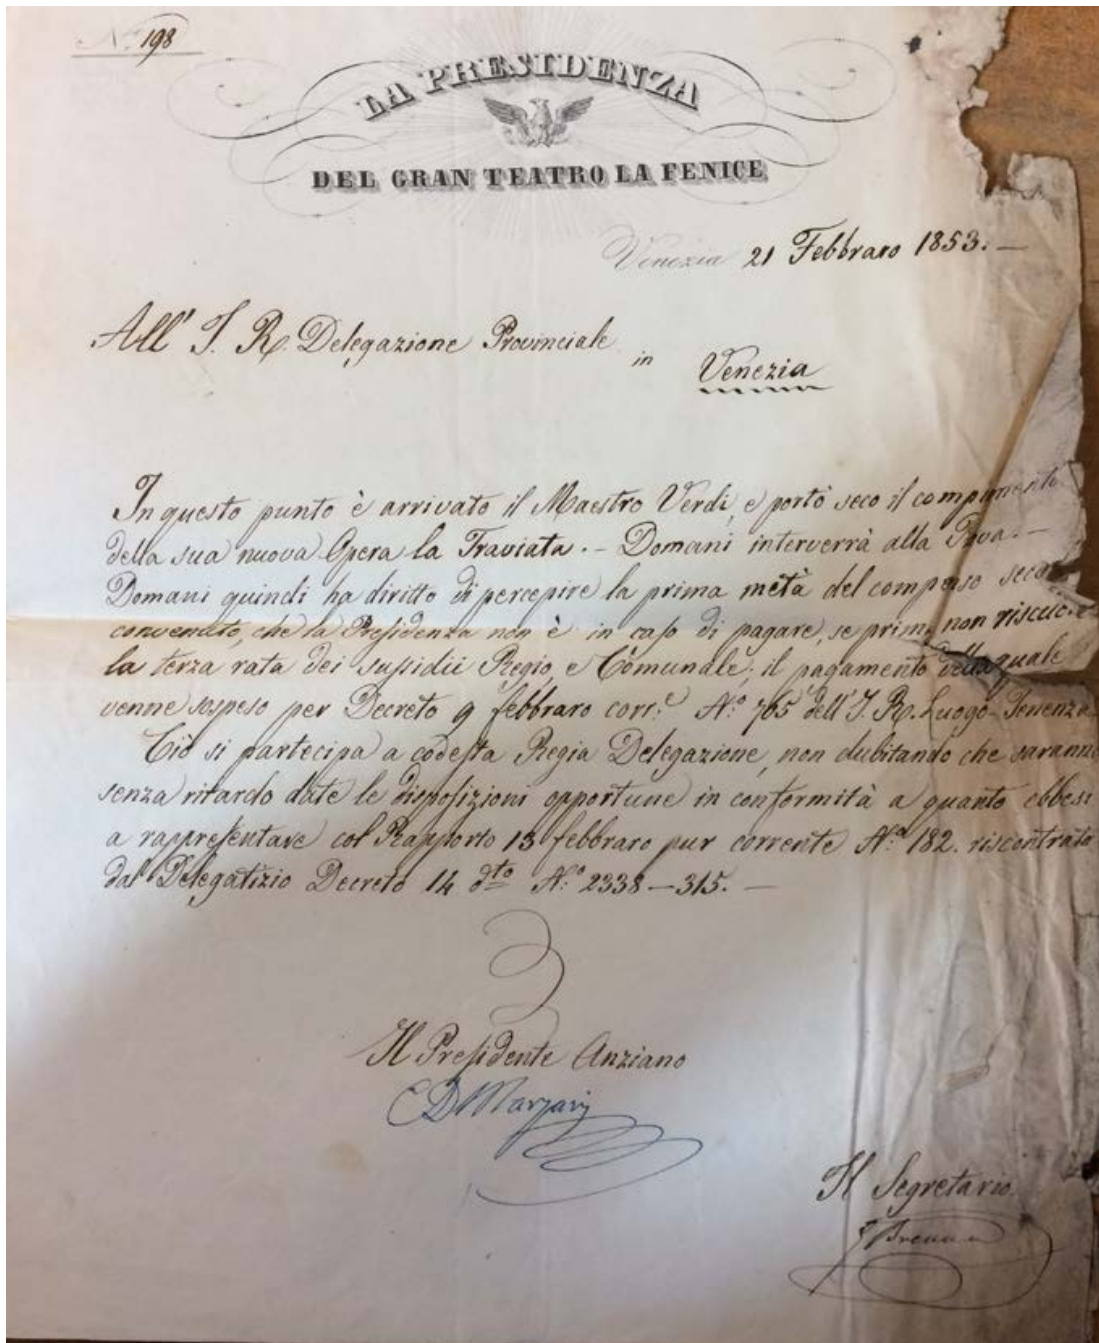 N.º 198
LA PRESIDENZA
DEL GRAN TEATRO LA FENICE
Venezia 21 Febbraro 1853. —
All' I. R. Delegazione Provinciale
in Venezia
In questo punto è arrivato il Maestro Verdi, e portò seco il compimento
della sua nuova Opera la Traviata. — Domani interverrà alla Prova. —
Domani quindi ha diritto di percepire la prima metà del compenso
convenuto, che la Presidenza non è in caso di pagare, se prima non
la terza rata dei sussidii Regio, e Comunale; il pagamento della quale
venne sospeso per Decreto 9 febbraro corr.e N.º 765 dell' I. R. Luogo-Tenenza.
Ciò si partecipa a codesta Regia Delegazione, non dubitando che saranno
senza ritardo date le disposizioni opportune in conformità a quanto ebbesi
a rappresentare col Rapporto 13 febbraro pur corrente N.º 182. riscontrato
dal Delegatizio Decreto 14 dto N.º 2338 — 315. —
Il Presidente Anziano
CD Marzari
Il Segretario